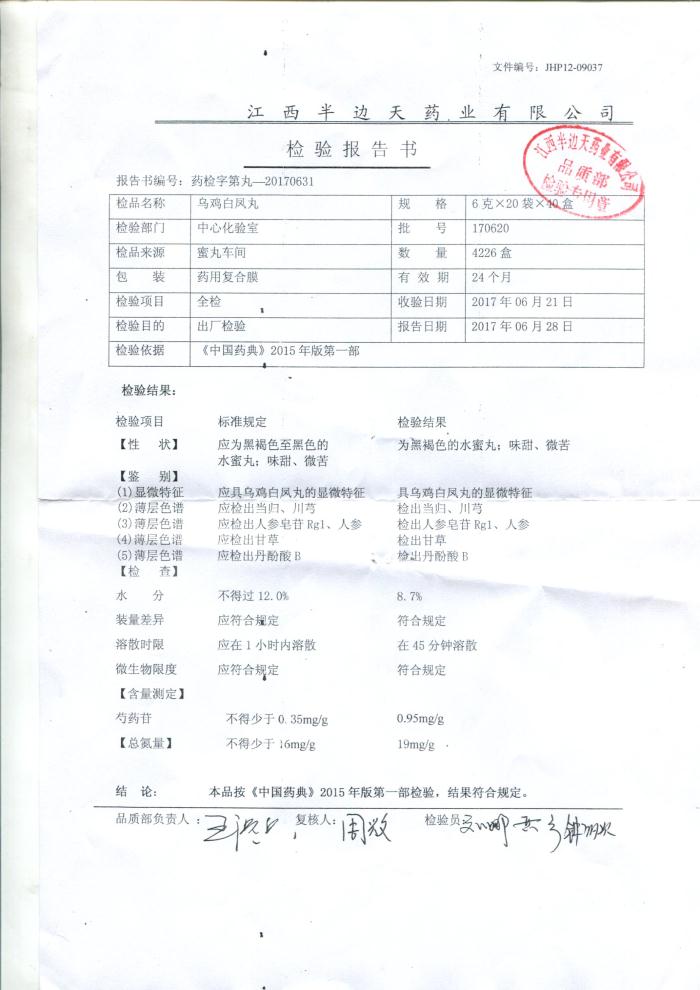 文件编号：JHP12-09037
江西半边天药业有限公司
检验报告书
江西半边天药业有限公司
品质部
检验专用章
报告书编号：药检字第丸—20170631
检品名称 乌鸡白凤丸 规 格 6克×20袋×40盒
检验部门 中心化验室 批 号 170620
检品来源 蜜丸车间 数 量 4226盒
包 装 药用复合膜 有 效 期 24个月
检验项目 全检 收验日期 2017年06月21日
检验目的 出厂检验 报告日期 2017年06月28日
检验依据 《中国药典》2015年版第一部
检验结果：
检验项目 标准规定 检验结果
【性 状】 应为黑褐色至黑色的 为黑褐色的水蜜丸；味甜、微苦
水蜜丸；味甜、微苦
【鉴 别】
(1)显微特征 应具乌鸡白凤丸的显微特征 具乌鸡白凤丸的显微特征
(2)薄层色谱 应检出当归、川芎 检出当归、川芎
(3)薄层色谱 应检出人参皂苷Rg1、人参 检出人参皂苷Rg1、人参
(4)薄层色谱 应检出甘草 检出甘草
(5)薄层色谱 应检出丹酚酸B 检出丹酚酸B
【检 查】
水 分 不得过12.0% 8.7%
装量差异 应符合规定 符合规定
溶散时限 应在1小时内溶散 在45分钟溶散
微生物限度 应符合规定 符合规定
【含量测定】
芍药苷 不得少于0.35mg/g 0.95mg/g
【总氮量】 不得少于16mg/g 19mg/g
结 论： 本品按《中国药典》2015年版第一部检验，结果符合规定。
品质部负责人： 复核人：周效 检验员